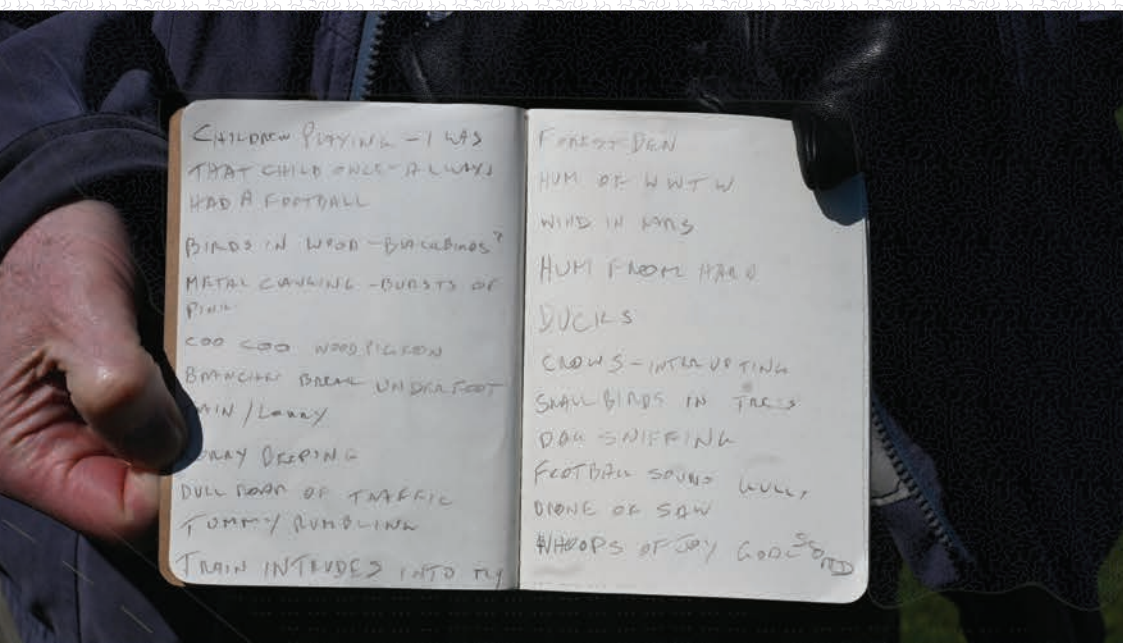 CHILDREN PLAYING - I WAS
THAT CHILD ONCE - ALWAYS
HAD A FOOTBALL
BIRDS IN WOOD - BLACKBIRDS?
METAL CLANKING - BURSTS OF
PINK
COO COO WOODPIGEON
BRANCHES BREAK UNDERFOOT
/LORRY
BEEPING
DULL ROAR OF TRAFFIC
TUMMY RUMBLING
TRAIN INTRUDES INTO MY
FOREST DEN
HUM OF WWTW
WIND IN EARS
HUM FROM HARD
DUCKS
CROWS - INTERUPTING
SMALL BIRDS IN TREES
DOG SNIFFING
FOOTBALL SOUND GULLS
DRONE OF SAW
WHOOPS OF JOY GOAL SCORED